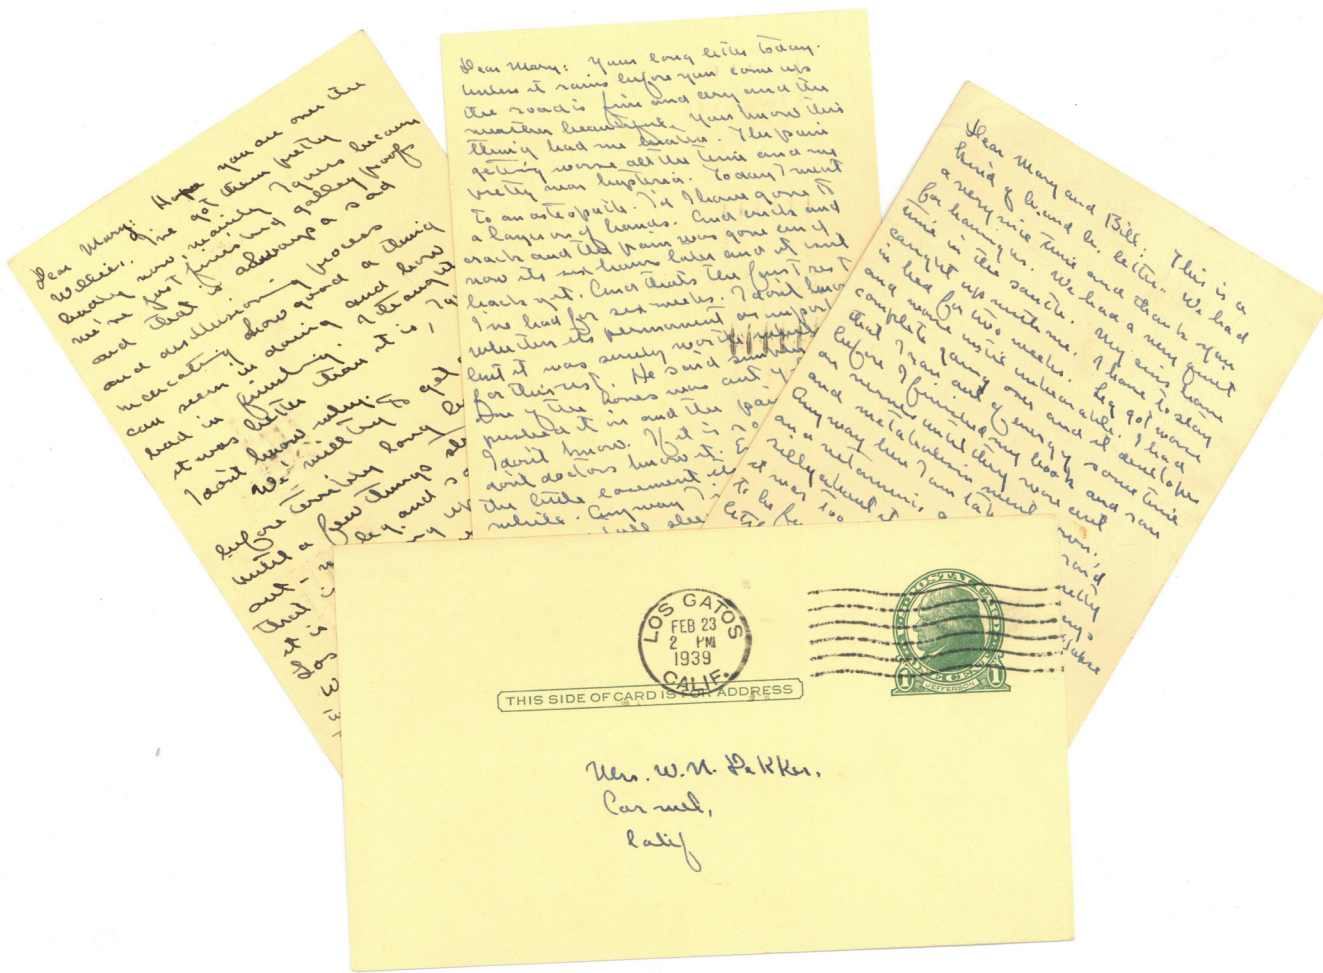 Dear Mary: Hope you are over the
Willies. I've got them pretty
badly now, mainly I guess because
we've just finished galley proofs
and that is always a sad
and disillusioning process
indicating how good a thing
can seem in doing and how
bad in finishing. I thought
it was better than it is,
I don't know why.
We're waiting to get
before
until a few things
out
leg. and
it is
Los
Dear Mary: Your long letter today.
Unless it rains before you come up
the road is fine and dry and the
weather beautiful. You know this
thing had me beaten. The pain
getting worse all the time and me
pretty near hysteria. Today I went
to an osteopath. I'd have gone to
a layer on of hands. And crick and
crack and the pain was gone and
now its six hours later and it isnt
back yet. And thats the first rest
I've had for six weeks. I don't know
whether its permanent or
but it was surely worth
for this rest. He said
One of the bones was out
pushed it in and the
I don't know. If it is so
don't doctors know it.
the little basement
while. Anyway
Dear Mary and Bill: This is a
kind of b. and b. letter. We had
a very nice time and thank you
for having us. We had a very quiet
time in the south. My sins have
caught up with me. I have to stay
in bed for two weeks. Leg got more
and more untenable. I had
complete going over and it develops
that I ran out of energy sometime
before I finished my book and ran
on nerves until they wore out
and metabolism went
Anyway here I am
on vitamins
silly about it
it was too
to be
THIS SIDE OF CARD IS FOR ADDRESS
LOS GATOS
FEB 23
2 PM
1939
CALIF.
POSTAL CARD
1 JEFFERSON 1
Mrs. W. N. Dekker.
Carmel,
Calif